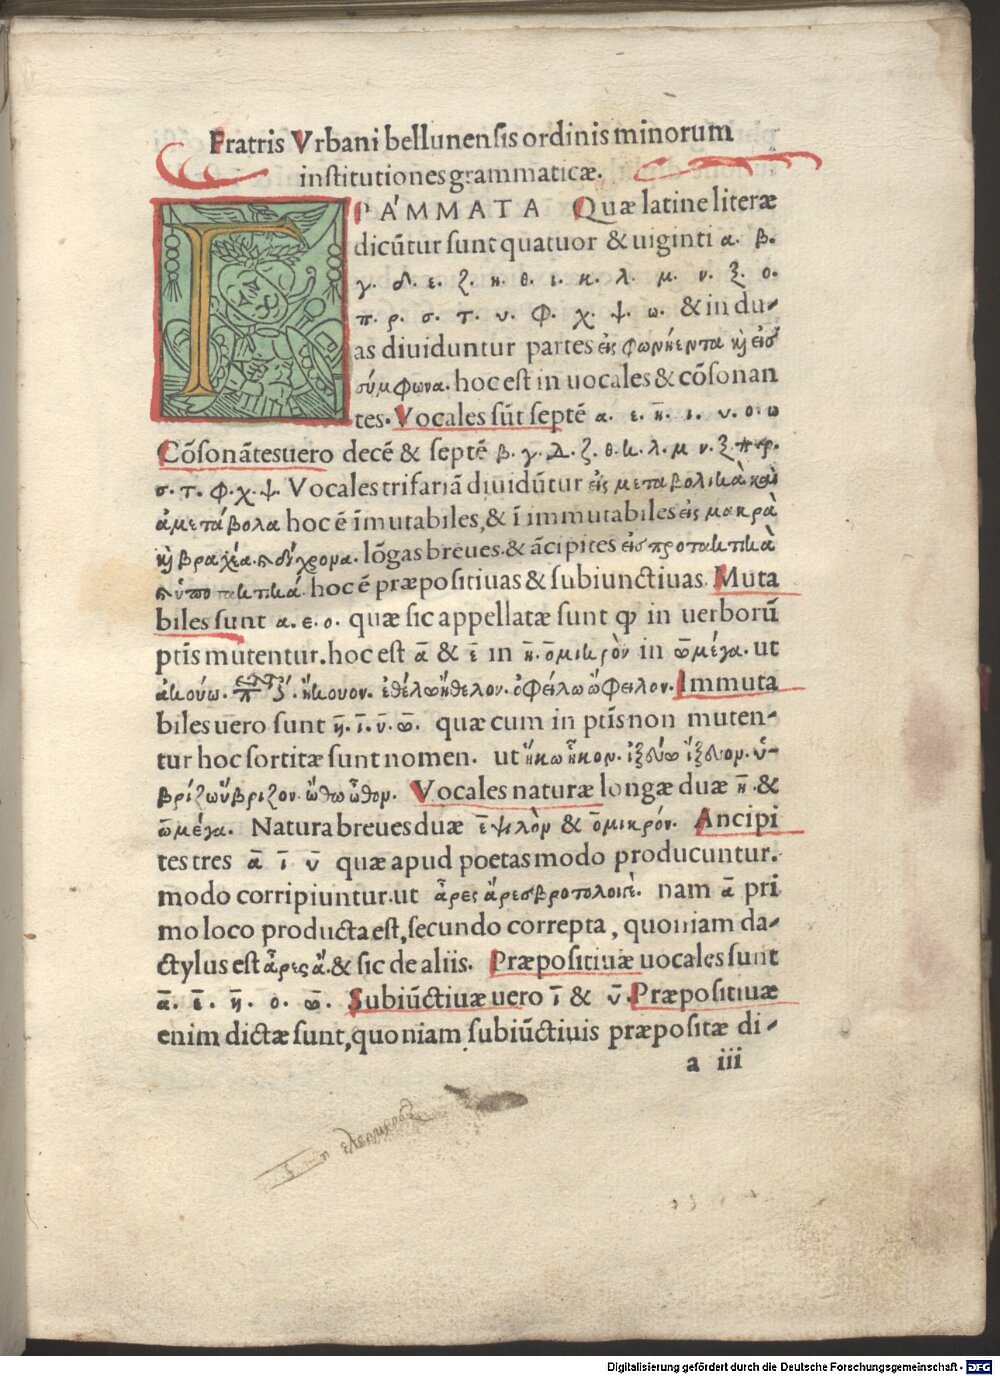 Fratris Vrbani bellunensis ordinis minorum
institutiones grammaticæ.
ΓΡΑ´ΜΜΑΤΑ Quæ latine literæ
dicũtur sunt quatuor & uiginti α. β.
γ. δ. ε. ζ. η. θ. ι. κ. λ. μ. ν. ξ. ο.
π. ρ. σ. τ. υ. φ. χ. ψ. ω. & in du-
as diuiduntur partes εἰς φωνήεντα κỳ εἰσ
σύμφωνα. hoc est in uocales & cõsonan
tes. Vocales sũt septẽ α. ε. η̄. ι. υ. ο. ω
Cõsonãtes uero decẽ & septẽ β. γ. δ. ζ. θ. κ. λ. μ ν. ξ. π. ρ.
σ. τ. φ. χ. ψ. Vocales trifariã diuidũtur εἰς μεταβολικὰ καὶ
ἀμετάβολα hoc ẽ ĩmutabiles, & ĩ immutabiles εἰς μακρὰ
κỳ βραχέα. κ δίχρονα. lõgas breues. & ãcipites εἰσ προτακτικὰ
κ ὑποτακτικά. hoc ẽ præpositiuas & subiunctiuas. Muta
biles sunt α. ε. ο. quæ sic appellatæ sunt ꝙ in uerborũ
ptis̄ mutentur. hoc est ᾱ & ε̄ in η̄. ο̄μικρὸν in ω̄μέγα. ut
ἀκούω. ἤκουον. ἐθέλω ἤθελον. ὀφείλω ὤφειλον. Immuta
biles uero sunt η̄. ῑ. ῡ. ω̄. quæ cum in ptis̄ non muten-
tur hoc sortitæ sunt nomen. ut ἥκω ἧκον. ἰξεύω ἴξευον. ὑ-
βρίζω ὕβριζον. ὤθω ὦθον. Vocales naturæ longæ duæ η̄ &
ω̄μέγα. Natura breues duæ ε̄ψιλὸν & ο̄μικρόν. Ancipi
tes tres ᾱ ῑ ῡ quæ apud poetas modo producuntur.
modo corripiuntur. ut ἆρες ἄρες βροτολοιγὲ. nam ᾱ pri
mo loco producta est, secundo correpta, quoniam da-
ctylus est ἆρες ἄ. & sic de aliis. Præpositiuæ uocales sunt
ᾱ. ε̄. η̄. ο. ω̄. Subiũctiuæ uero ῑ & ῡ. Præpositiuæ
enim dictæ sunt, quoniam subiũctiuis præpositæ di-
a iii
Digitalisierung gefördert durch die Deutsche Forschungsgemeinschaft - DFG